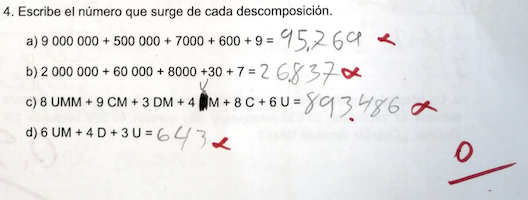 4. Escribe el número que surge de cada descomposición.
a) 9 000 000 + 500 000 + 7000 + 600 + 9 = 95,769
b) 2 000 000 + 60 000 + 8000 +30 + 7 = 26837
c) 8 UMM + 9 CM + 3 DM + 4 M + 8 C + 6 U = 893.486
d) 6 UM + 4 D + 3 U = 643
0